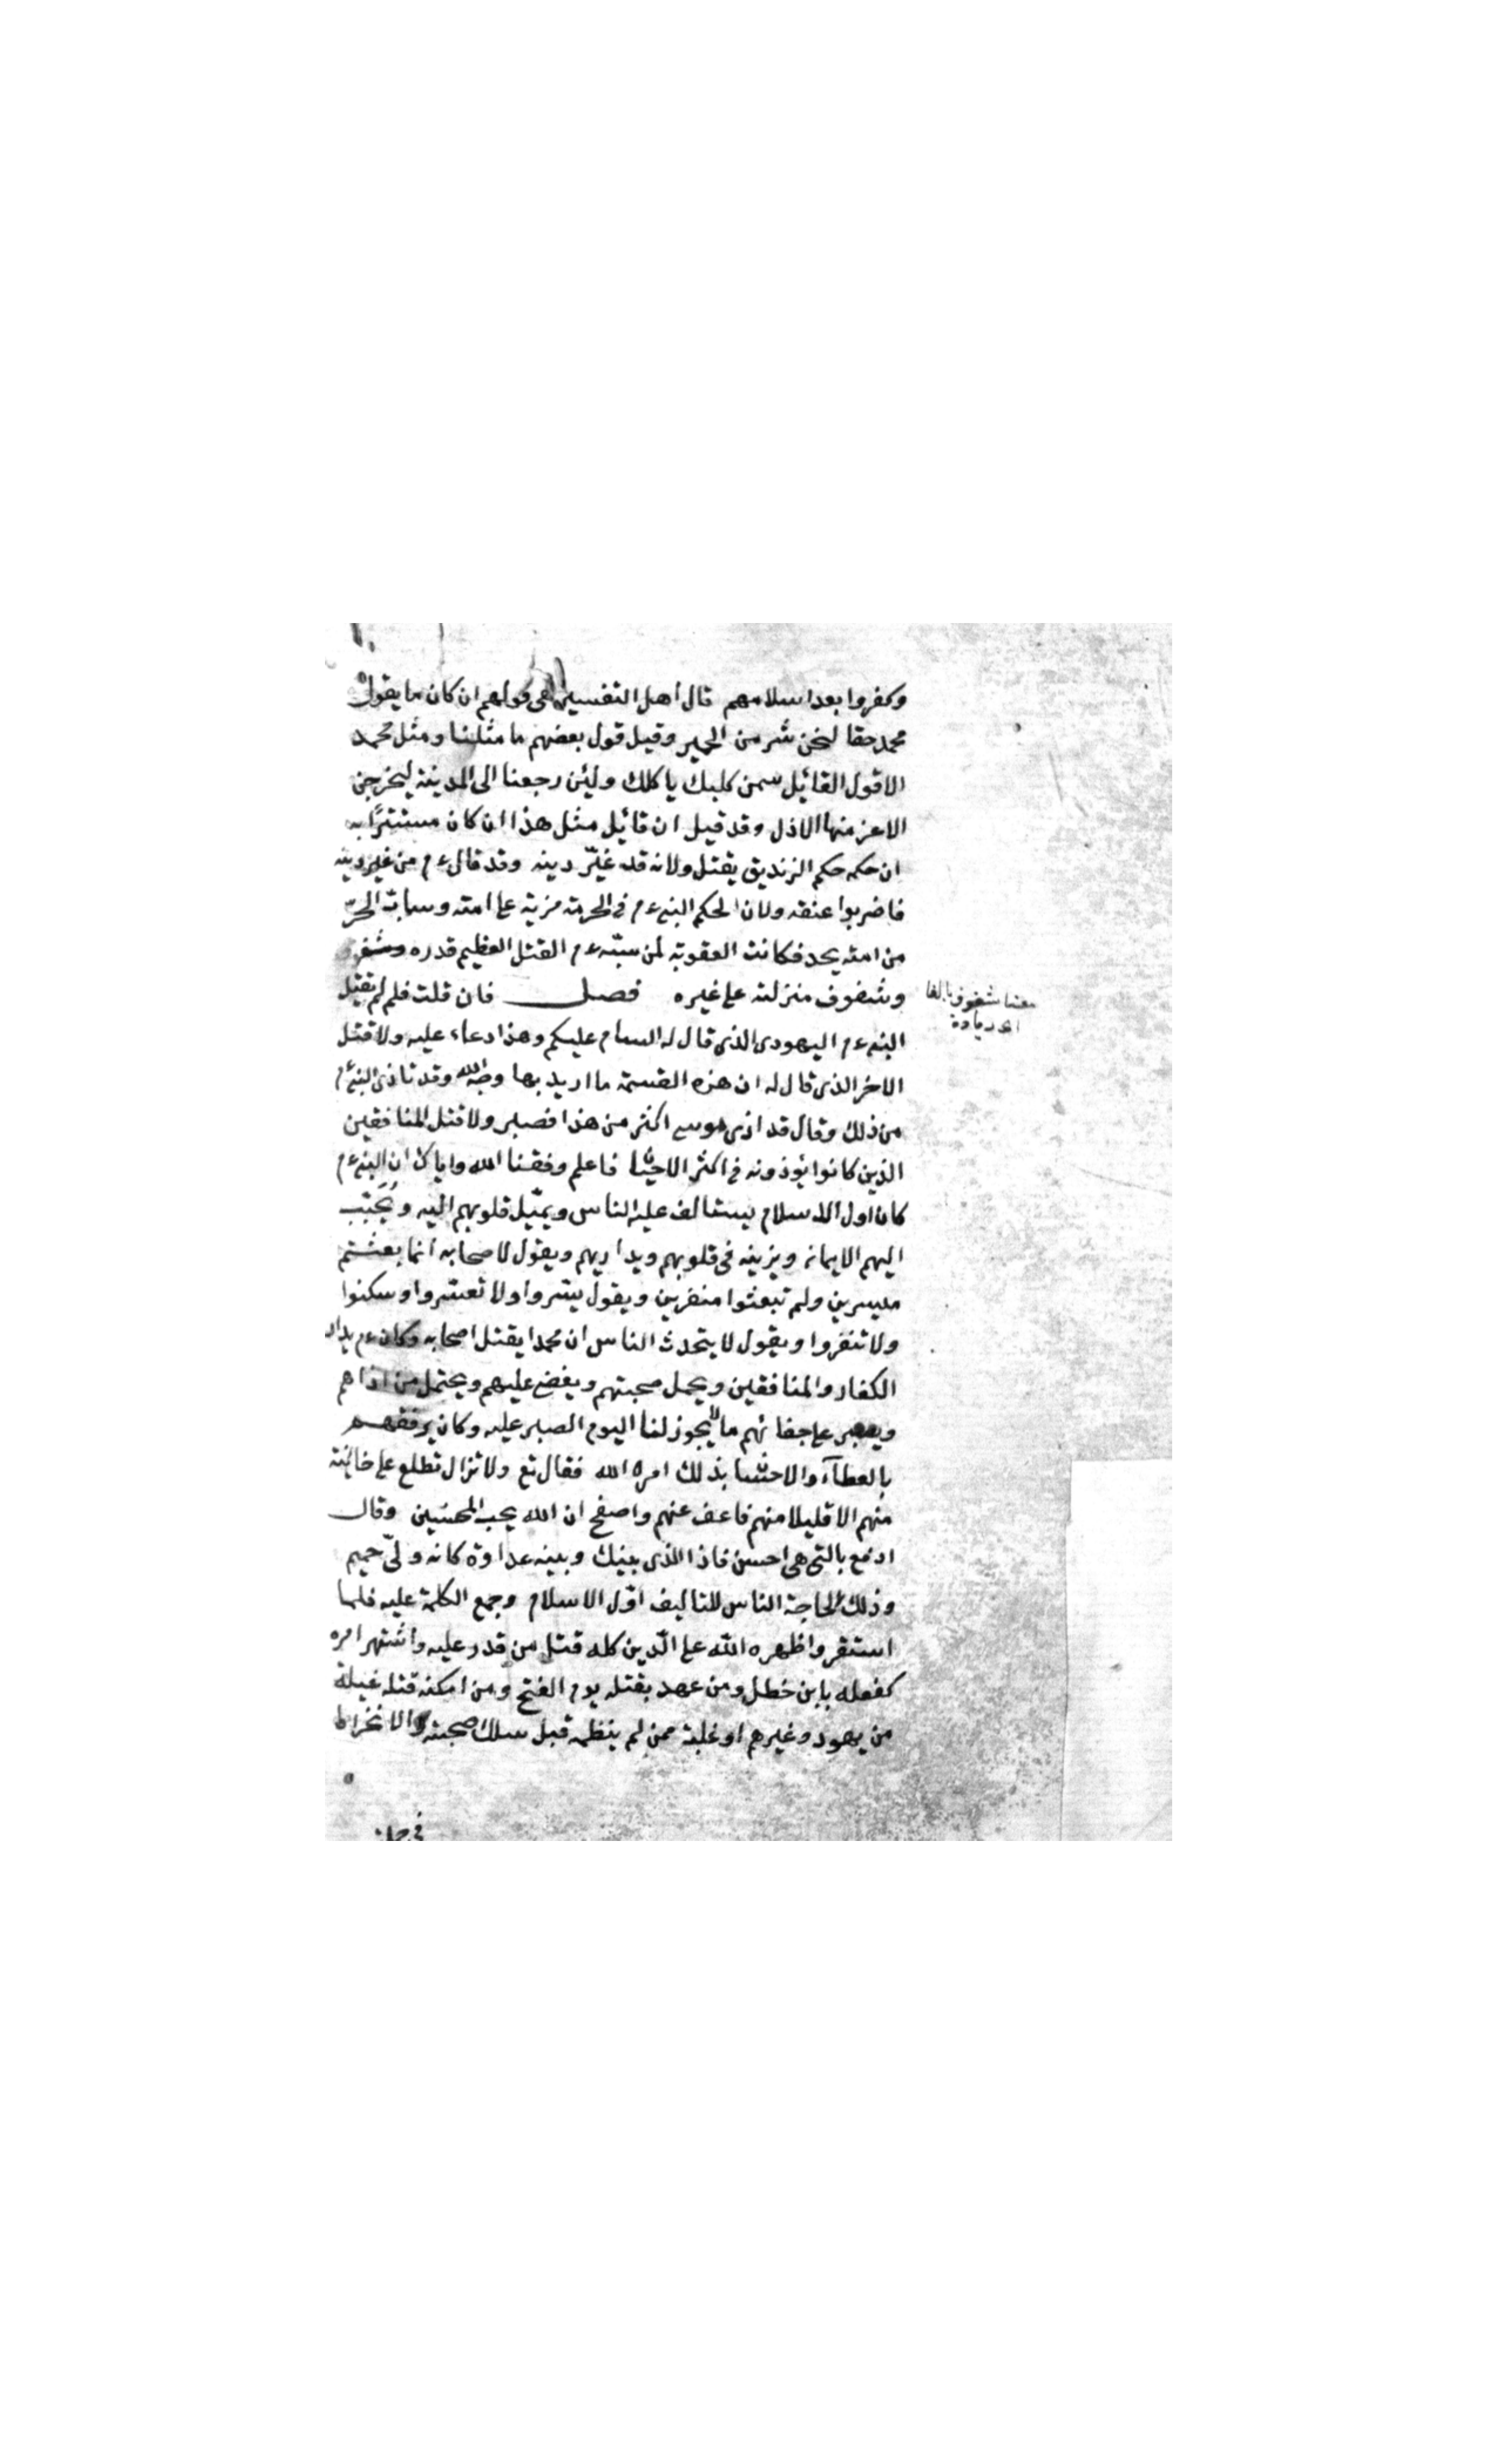 وكفروا بعد اسلامهم قال أهل التفسير هى قولهم ان كان ما يقول
محمد حقا لنحن شر من الحمير وقيل قول بعضهم ما مثلنا ومثل محمد
الا قول القائل سمن كلبك ياكلك ولئن رجعنا الى المدينة ليخرجن
الاعز منها الاذل وقد قيل ان قائل مثل هذا ان كان مستترًا به
ان حكمه حكم الزنديق يقتل ولانه قد غيّر دينه وقد قال عم من غير دينه
فاضربوا عنقه ولان لحكم النبي عم في الحرمة مزية على امته وسابّ الحرّ
من امته يحد فكانت العقوبة لمن سبّه عم القتل العظيم قدره
وشفوف منزلته على غيره فصل فان قلت فلم لم يقتل
النبي عم اليهودى الذى قال له السام عليكم وهذا دعاء عليه ولا قتل
الاخر الذى قال له ان هذه القسمة ما اريد بها وجه الله وقد تاذى النبي عم
من ذلك وقال قد اذى موسى اكثر من هذا فصبر ولا قتل المنافقين
الذين كانوا يؤذونه في اكثر الاحيان فاعلم وفقنا الله واياك ان النبي عم
كان اول الاسلام يستالف عليه الناس ويميّل قلوبهم اليه ويُحَبّب
اليهم الايمان ويزينه في قلوبهم ويداريهم ويقول لاصحابه انما بعثتم
ميسرين ولم تبعثوا منفرين ويقول يسّروا ولا تعسّروا وسكنوا
ولا تنفروا ويقول لا يتحدث الناس ان محمدا يقتل اصحابه وكان عم يدارى
الكفار والمنافقين ويجمل صحبتهم ويغضى عليهم ويحتمل من اذاهم
ويصبر على جفائهم ما لا يجوز لنا اليوم الصبر عليه وكان يرفقهم
بالعطاء والاحسان بذلك امره الله فقال تع ولا تزال تطلع على خائنة
منهم الا قليلا منهم فاعف عنهم واصفح ان الله يحب المحسنين وقال
ادفع بالتى هى احسن فاذا الذى بينك وبينه عداوة كانه ولىّ حميم
وذلك لحاجة الناس للتاليف اوّل الاسلام وجمع الكلمة عليه فلما
استقر واظهره الله على الدّين كله قتل من قدر عليه واشتهر امره
كفعله بابن خطل ومن عهد بقتله يوم الفتح ومن امكنه قتله غيلة
من يهود وغيرهم او غلبة ممن لم ينظمه قبل سلك صحبته والانخراط
معنا شفوف بالفا
اى زيادة
في جملة